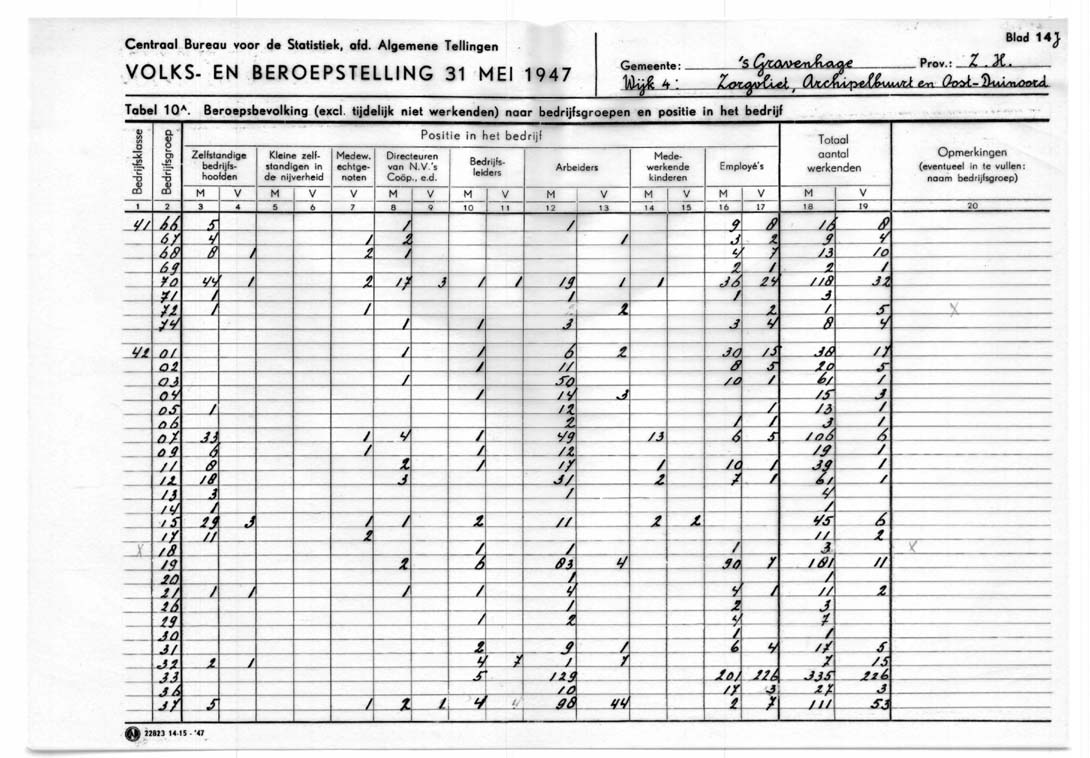 Centraal Bureau voor de Statistiek, afd. Algemene Tellingen
VOLKS- EN BEROEPSTELLING 31 MEI 1947
Blad 14J
Gemeente: 's Gravenhage Prov.: Z. H.
Wijk 4: Zorgvliet, Archipelbuurt en Oost-Duinoord
Tabel 10A. Beroepsbevolking (excl. tijdelijk niet werkenden) naar bedrijfsgroepen en positie in het bedrijf
Bedrijfsklasse
Bedrijfsgroep
Positie in het bedrijf
Zelfstandige bedrijfs-hoofden
Kleine zelf-standigen in de nijverheid
Medew. echtge-noten
Directeuren van N.V.'s Coöp., e.d.
Bedrijfs-leiders
Arbeiders
Mede-werkende kinderen
Employé's
Totaal aantal werkenden
Opmerkingen (eventueel in te vullen: naam bedrijfsgroep)
M V M V V M V M V M V M V M V M V
1 2 3 4 5 6 7 8 9 10 11 12 13 14 15 16 17 18 19 20
41 66 5 1 1 9 8 16 8
67 4 1 2 1 3 2 9 4
68 8 1 2 1 4 7 13 10
69 2 1 2 1
70 44 1 2 17 3 1 1 19 1 1 36 24 118 32
71 1 1 1 3
72 1 1 2 2 1 5 x
74 1 1 3 3 4 8 4
42 01 1 1 6 2 30 15 38 17
02 1 11 8 5 20 5
03 1 50 10 1 61 1
04 1 14 3 15 3
05 1 12 1 13 1
06 2 1 1 3 1
07 33 1 4 1 49 13 6 5 106 6
09 6 1 1 12 19 1
11 8 2 1 17 1 10 1 39 1
12 18 3 31 2 7 1 61 1
13 3 1 4
14 1 1
15 29 3 1 1 2 11 2 2 45 6
17 11 2 11 2
x 18 1 1 1 3 x
19 2 6 83 4 90 7 181 11
20 1 1
21 1 1 1 1 4 4 1 11 2
26 1 2 3
29 1 2 4 7
30 1 1
31 2 9 1 6 4 17 5
32 2 1 4 7 1 7 7 15
33 5 129 201 226 335 226
36 10 17 3 27 3
37 5 1 2 1 4 98 44 2 7 111 53
22823 14-15 - '47